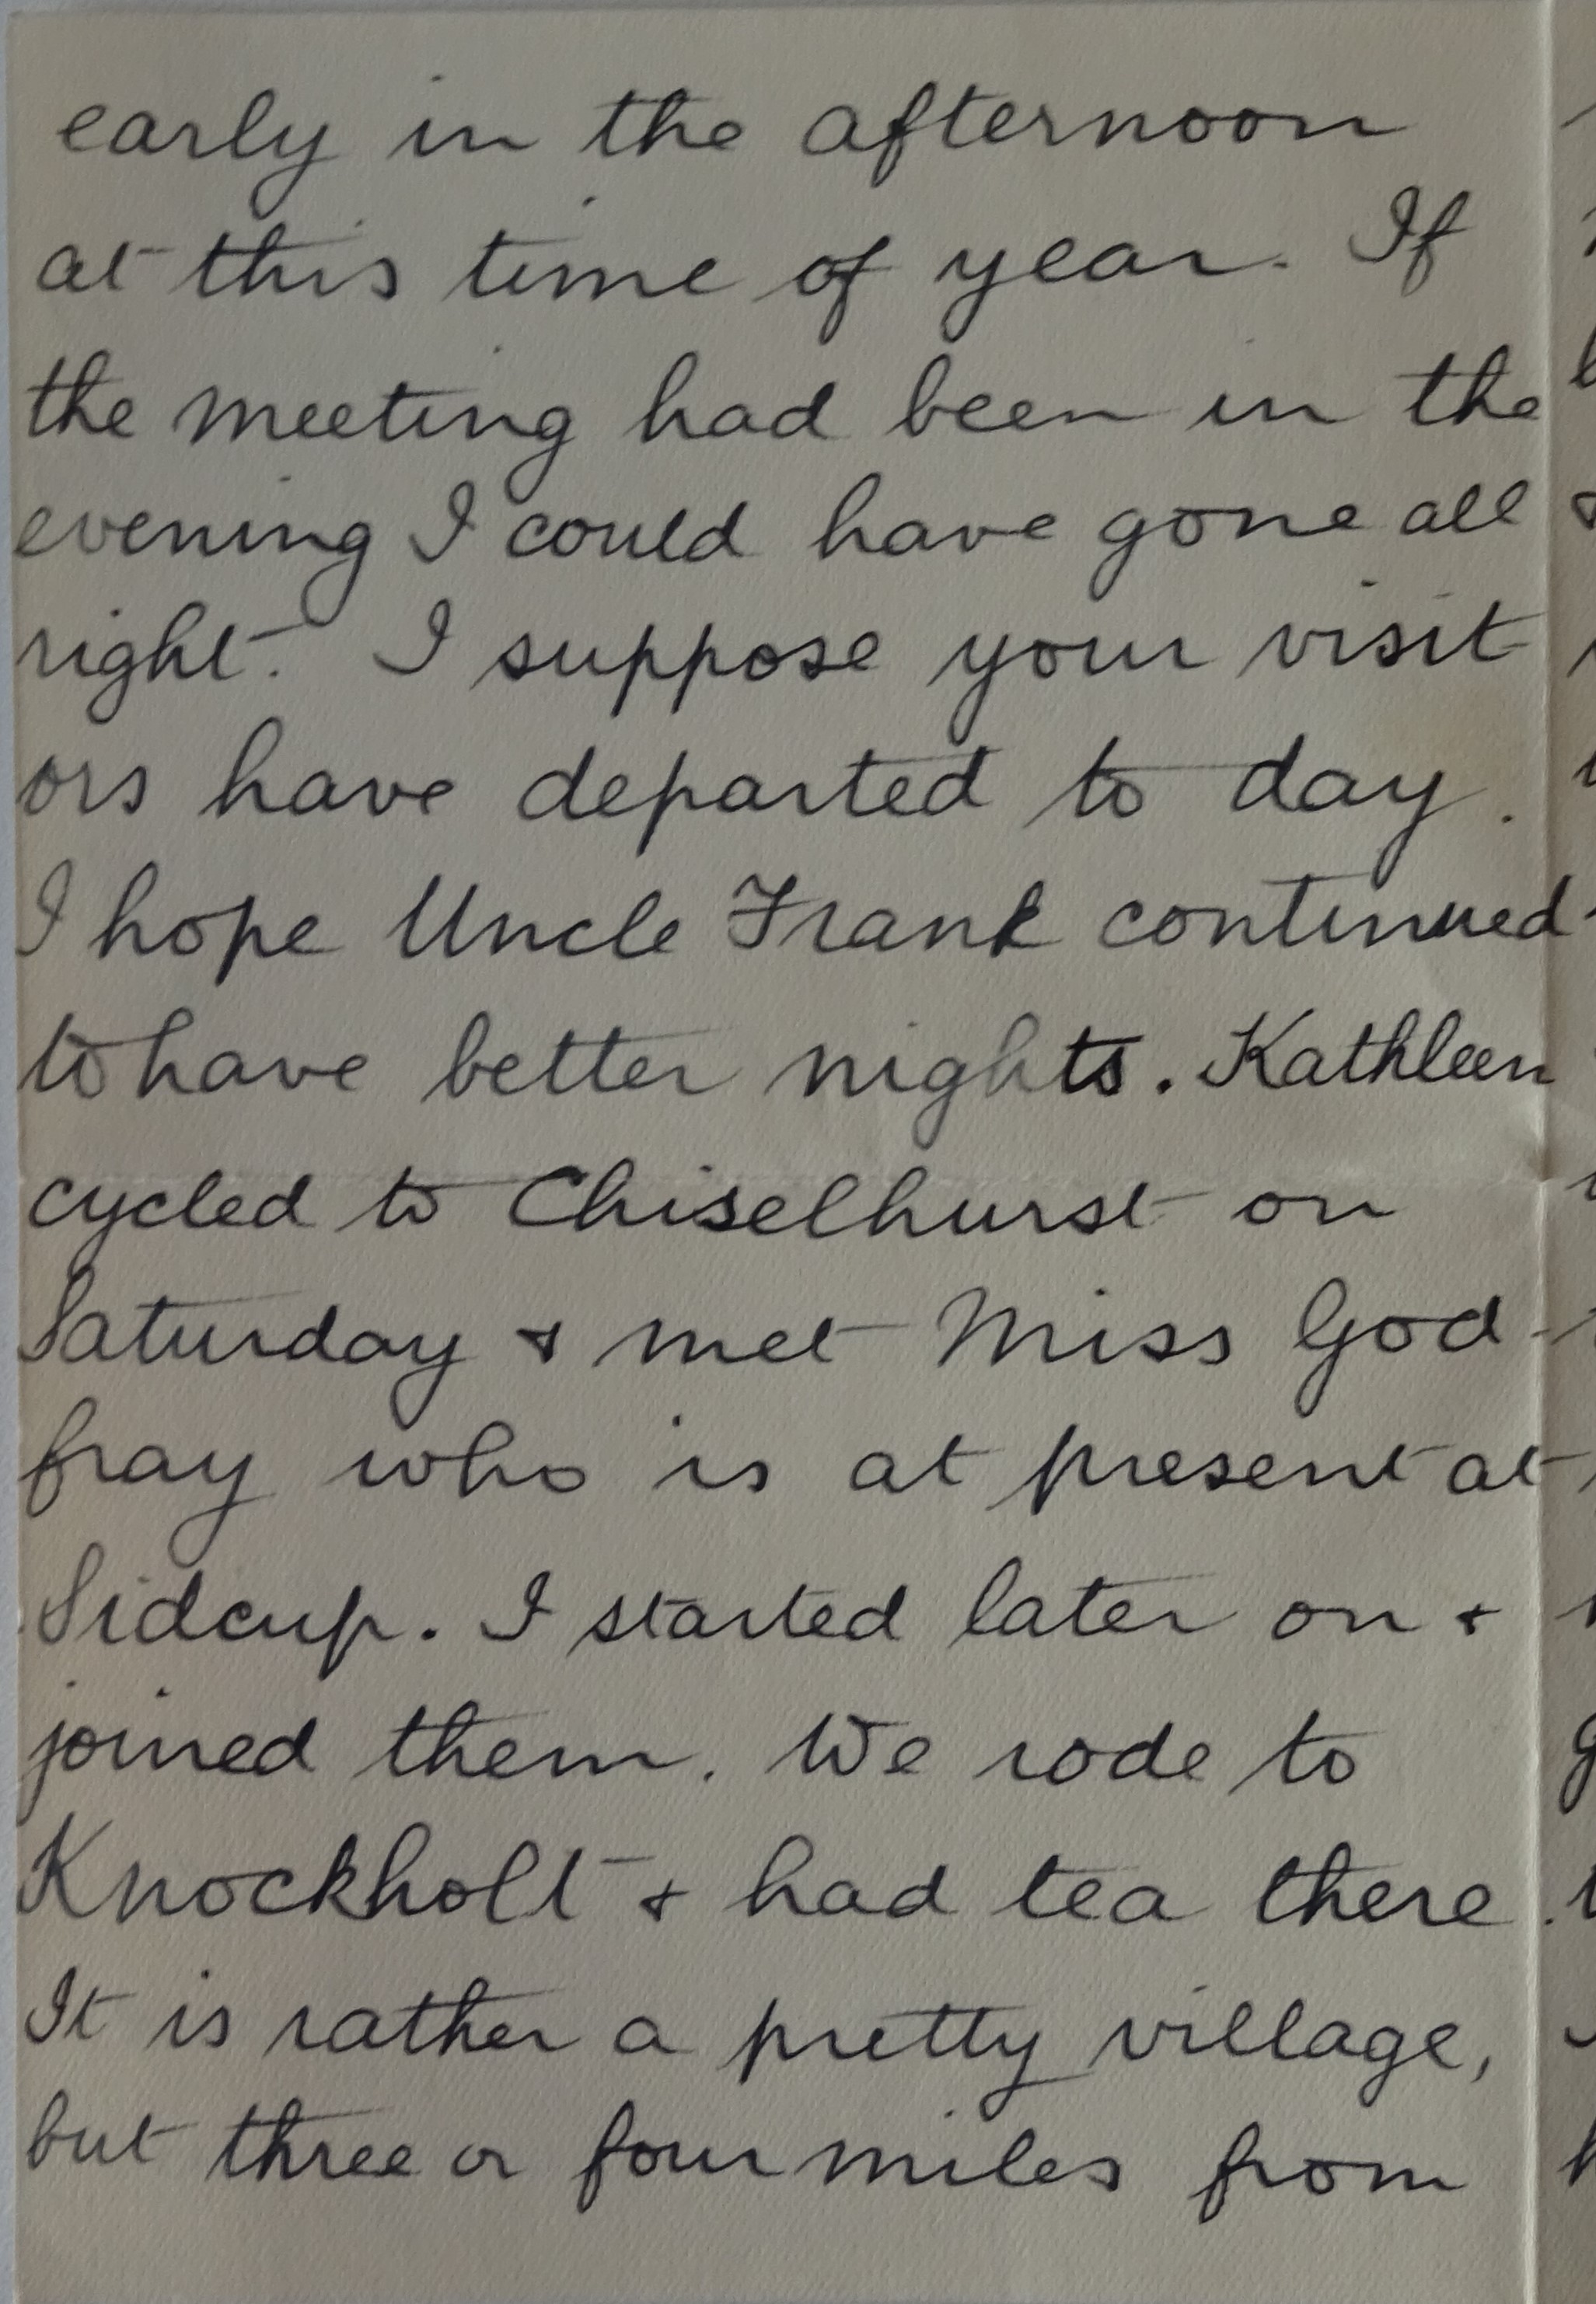 early in the afternoon
at this time of year. If
the meeting had been in the
evening I could have gone all
right. I suppose your visit
ors have departed to day.
I hope Uncle Frank continued
to have better nights. Kathleen
cycled to Chiselhurst on
Saturday & met Miss God
fray who is at present at
Sidcup. I started later on &
joined them. We rode to
Knockholt & had tea there.
It is rather a pretty village,
but three or four miles from